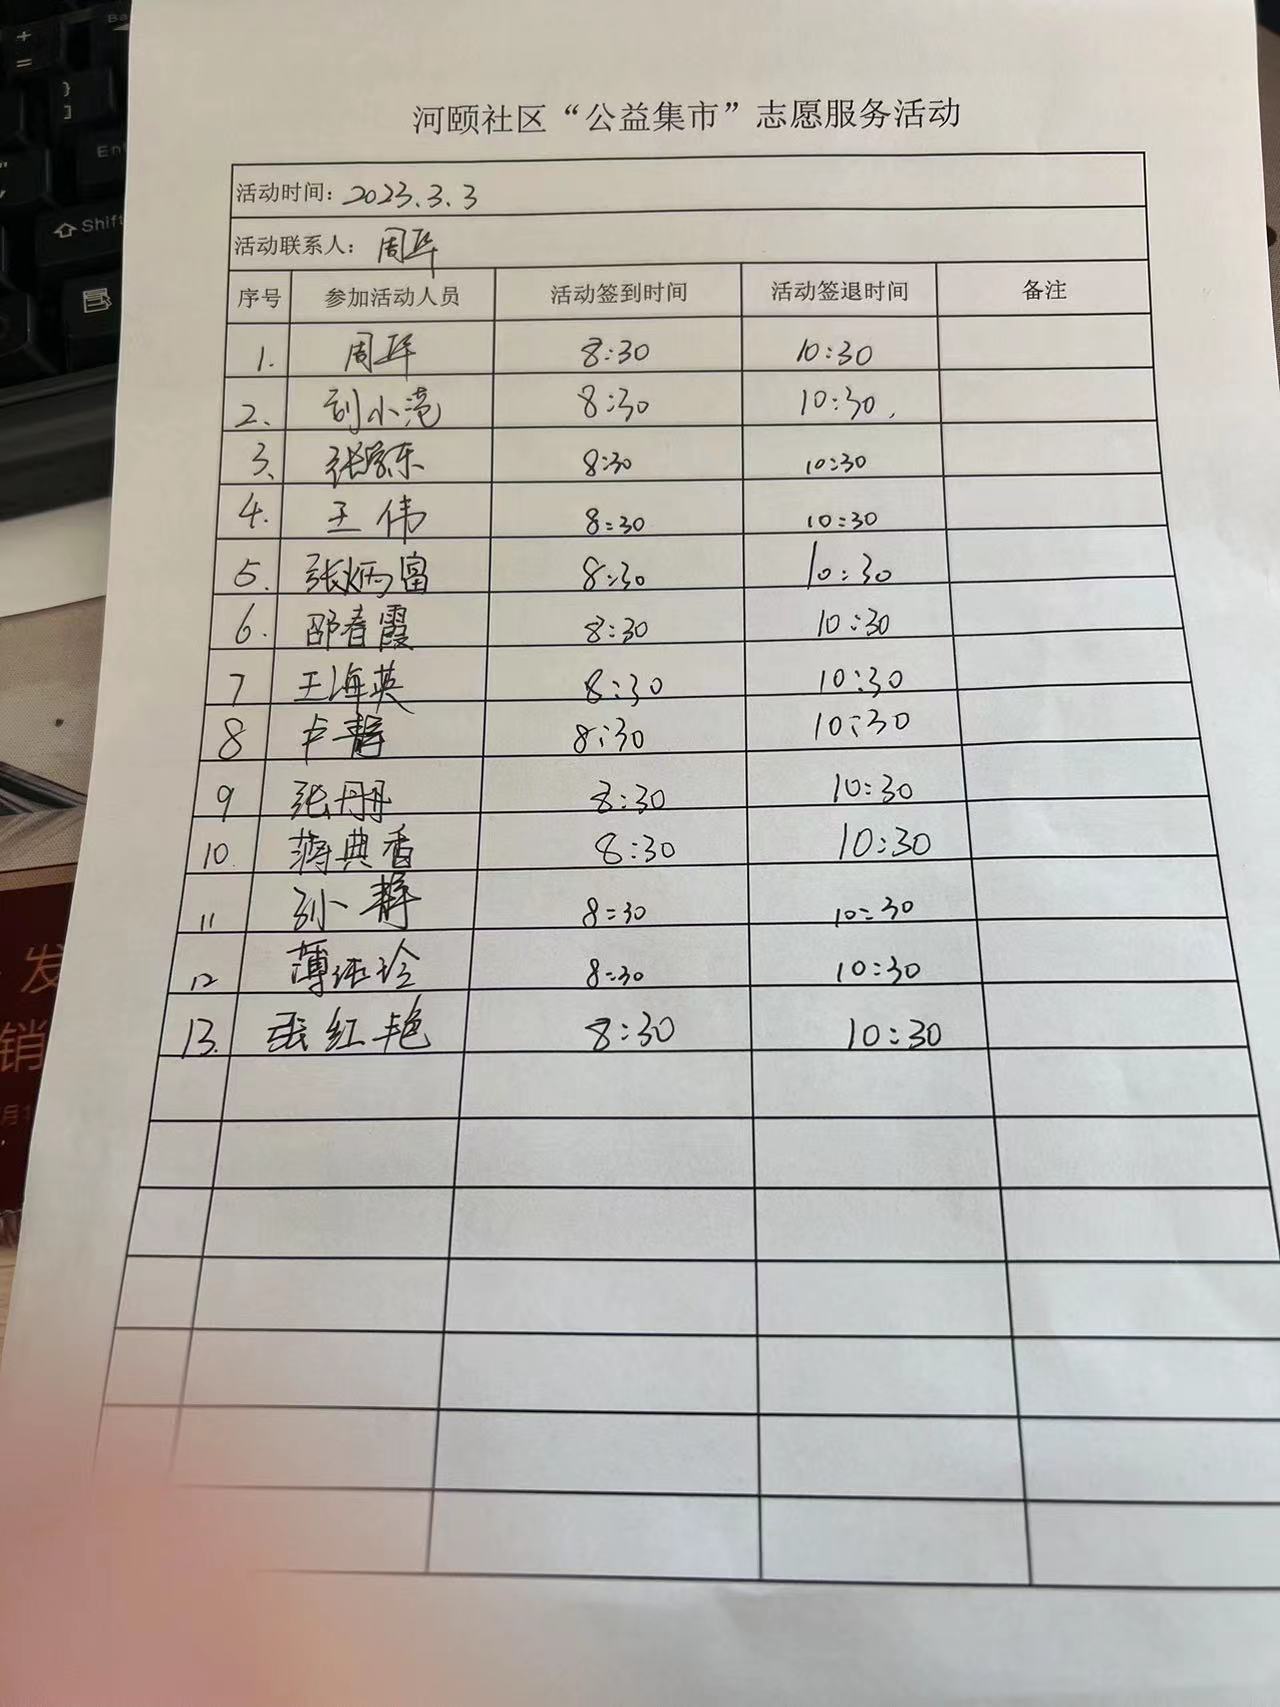 河颐社区“公益集市”志愿服务活动
活动时间：2023.3.3
活动联系人：周华
序号 参加活动人员 活动签到时间 活动签退时间 备注
1. 周华 8:30 10:30
2. 刘小 8:30 10:30.
3、 张家乐 8:30 10:30
4. 王伟 8:30 10:30
5. 张炳富 8:30 10:30
6. 邵春霞 8:30 10:30
7 王海英 8:30 10:30
8 卢静 8:30 10:30
9 张丹丹 8:30 10:30
10. 蒋典香 8:30 10:30
11 孙静 8:30 10:30
12 薄 玲 8:30 10:30
13. 张红艳 8:30 10:30
Shift
发
销